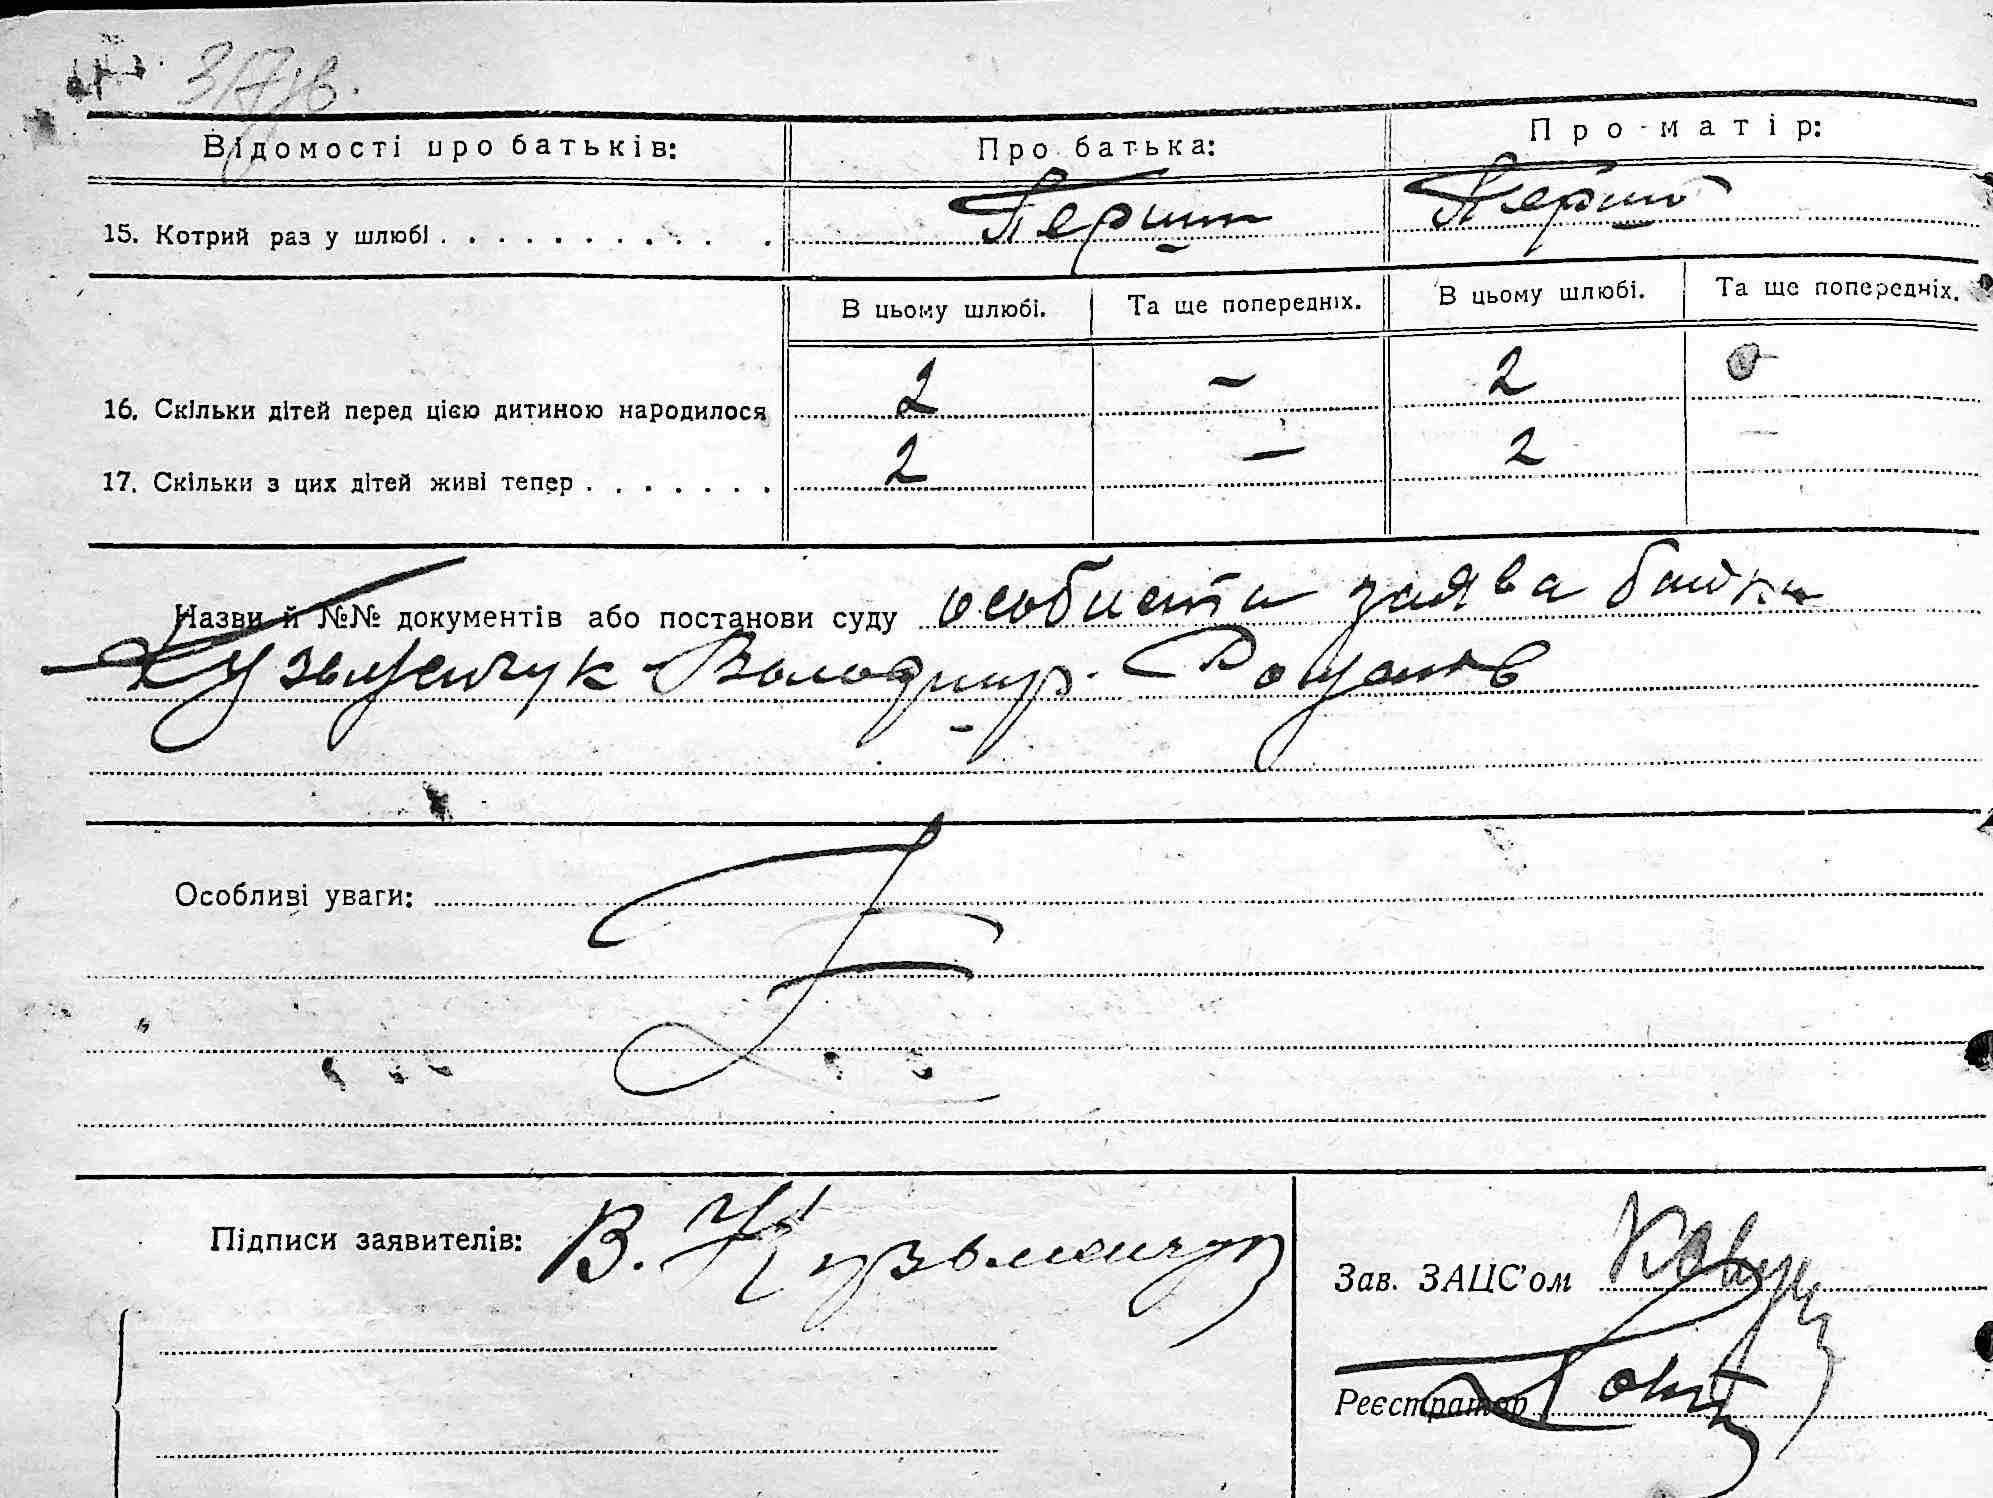 Відомості про батьків: Про батька: Про матір:
15. Котрий раз у шлюбі . . . . . . . . . . . . Перший Перший
В цьому шлюбі. Та ще попередніх. В цьому шлюбі. Та ще попередніх.
16. Скільки дітей перед цією дитиною народилося 2 – 2 –
17. Скільки з цих дітей живі тепер . . . . . . . 2 – 2 –
Назви й №№ документів або постанови суду особиста заява батька
Кузьменчук Володимир
Особливі уваги:
Підписи заявителів: В. Кузьменчук
Зав. ЗАЦС'ом
Реєстратор